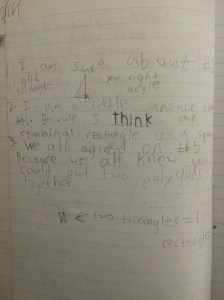 1. I am sure about #2
right triangle right angle
2. I am a little unsure
because I think an
equilateral rectangle is a squ
3 We all agreed on #5
Because we all knew you
could put two polygons
together
← two triangles = 1
rectangle